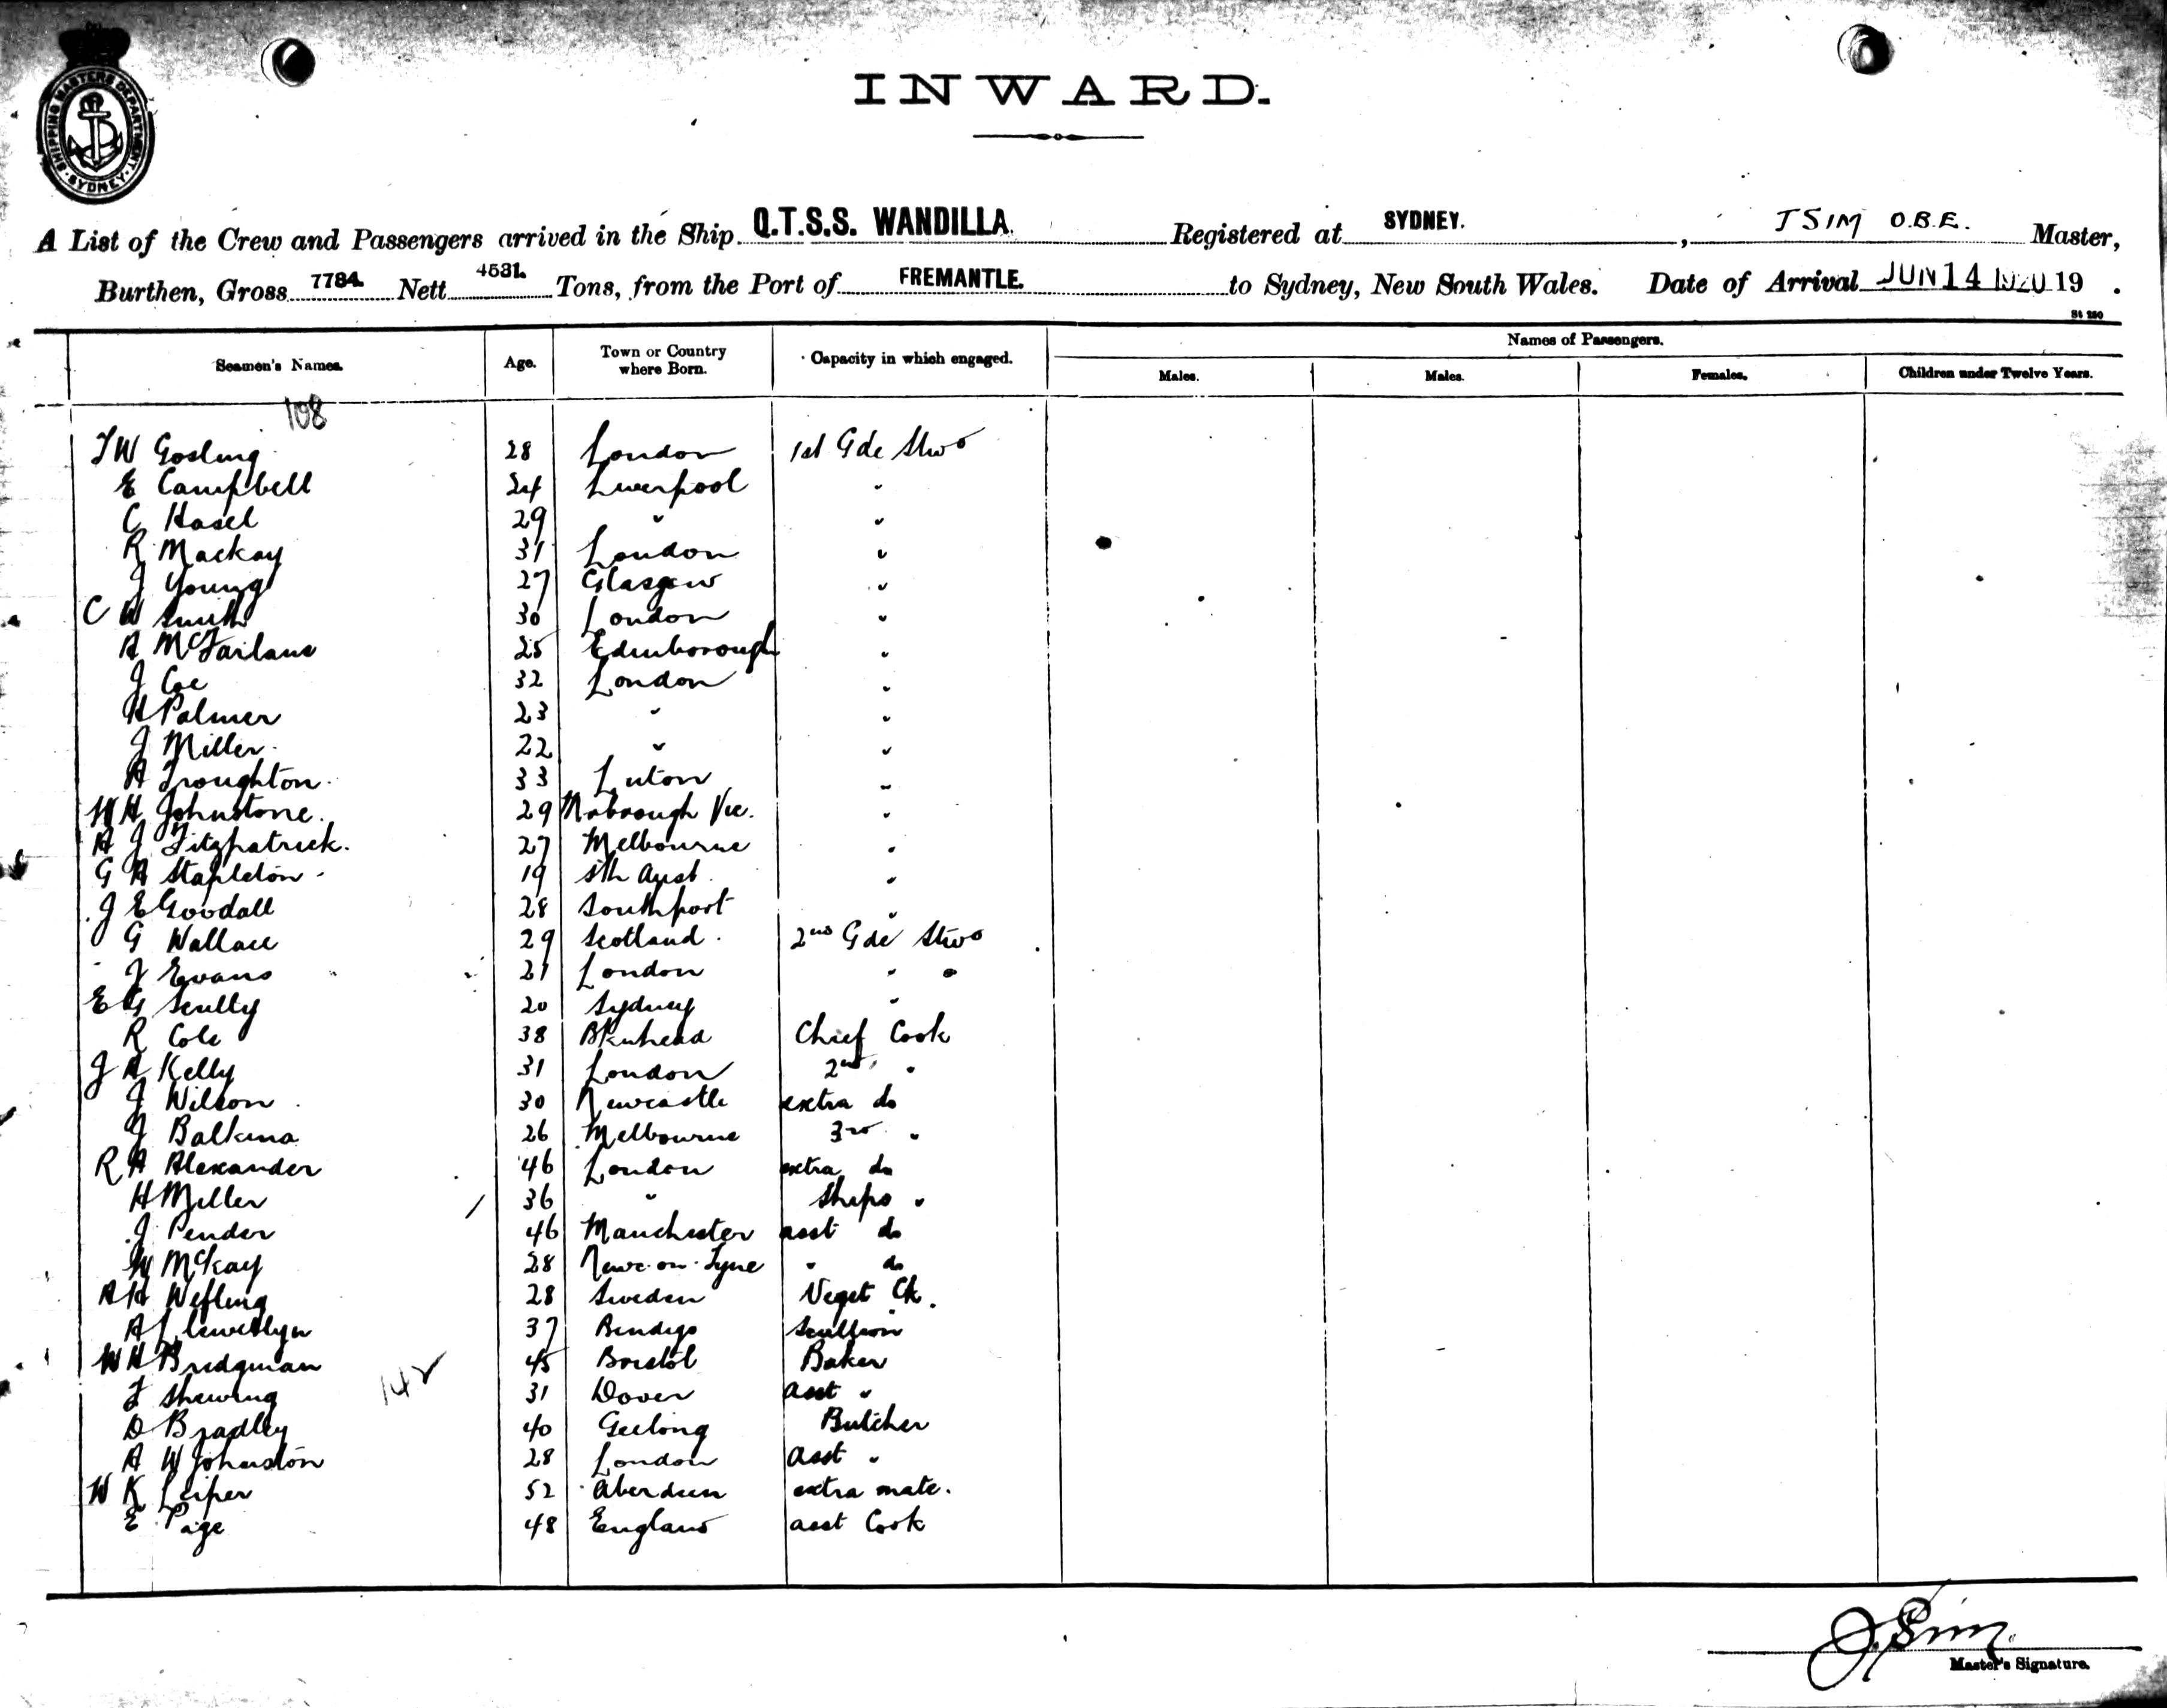 SHIPPING MASTERS DEPARTMENT. SYDNEY.
INWARD.
A List of the Crew and Passengers arrived in the Ship Q.T.S.S. WANDILLA. Registered at SYDNEY. , J SIM O.B.E. Master,
Burthen, Gross 7784. Nett 4531. Tons, from the Port of FREMANTLE. to Sydney, New South Wales. Date of Arrival JUN 14 1920 19 .
Seamen's Names. Age. Town or Country where Born. Capacity in which engaged. Names of Passengers.
Males. Males. Females. Children under Twelve Years.
108
T W Gosling 28 London 1st Gde Stwd
E Campbell 24 Liverpool "
C Hasel 29 " "
R Mackay 31 London "
J Young 27 Glasgow "
C W Smith 30 London "
A McFarlane 25 Edinborough "
J Coe 32 London "
H Palmer 23 " "
J Miller 22 " "
A Troughton 33 Luton "
W H Johnstone. 29 Mrbrough Vic. "
A J Fitzpatrick. 27 Melbourne "
G A Stapleton 19 Sth Aust. "
J E Goodall 28 Southport "
G Wallace 29 Scotland. 2nd Gde Stwd
J Evans 21 London "
E G Scully 20 Sydney "
R Cole 38 Bkenhead Chief Cook
J A Kelly 31 London 2nd "
J Wilson 30 Newcastle extra do
J Balkma 26 Melbourne 3rd "
R A Alexander 46 London extra do
H Miller 36 " Ships "
J Pender 46 Manchester asst do
W McKay 28 Newc-on-Tyne " do
A H Wefling 28 Sweden Veget Ck.
A Llewellyn 37 Bendigo Scullion
W H Bridgman 45 Bristol Baker
F Shewing 31 Dover asst "
142
D Bradley 40 Geelong Butcher
A W Johnston 28 London asst "
W K Leiper 52 Aberdeen extra mate.
E Page 48 England asst Cook
J. Sim
Master's Signature.